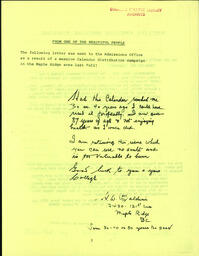 FROM ONE OF THE BEAUTIFUL PEOPLE
The following letter was sent to the Admissions Office
as a result of a massive Calendar distribution campaign
in the Maple Ridge area last fall:
Had this Calendar reached me
30 or 40 years ago I could have
used it profitably. I am over
87 years of age & not enjoying
health as I once did.
I am returning the
you can use no doubt and
is too valuable to burn
Good luck to you & your
College
Maple Ridge
BC
30 - 40 or 50 years too good